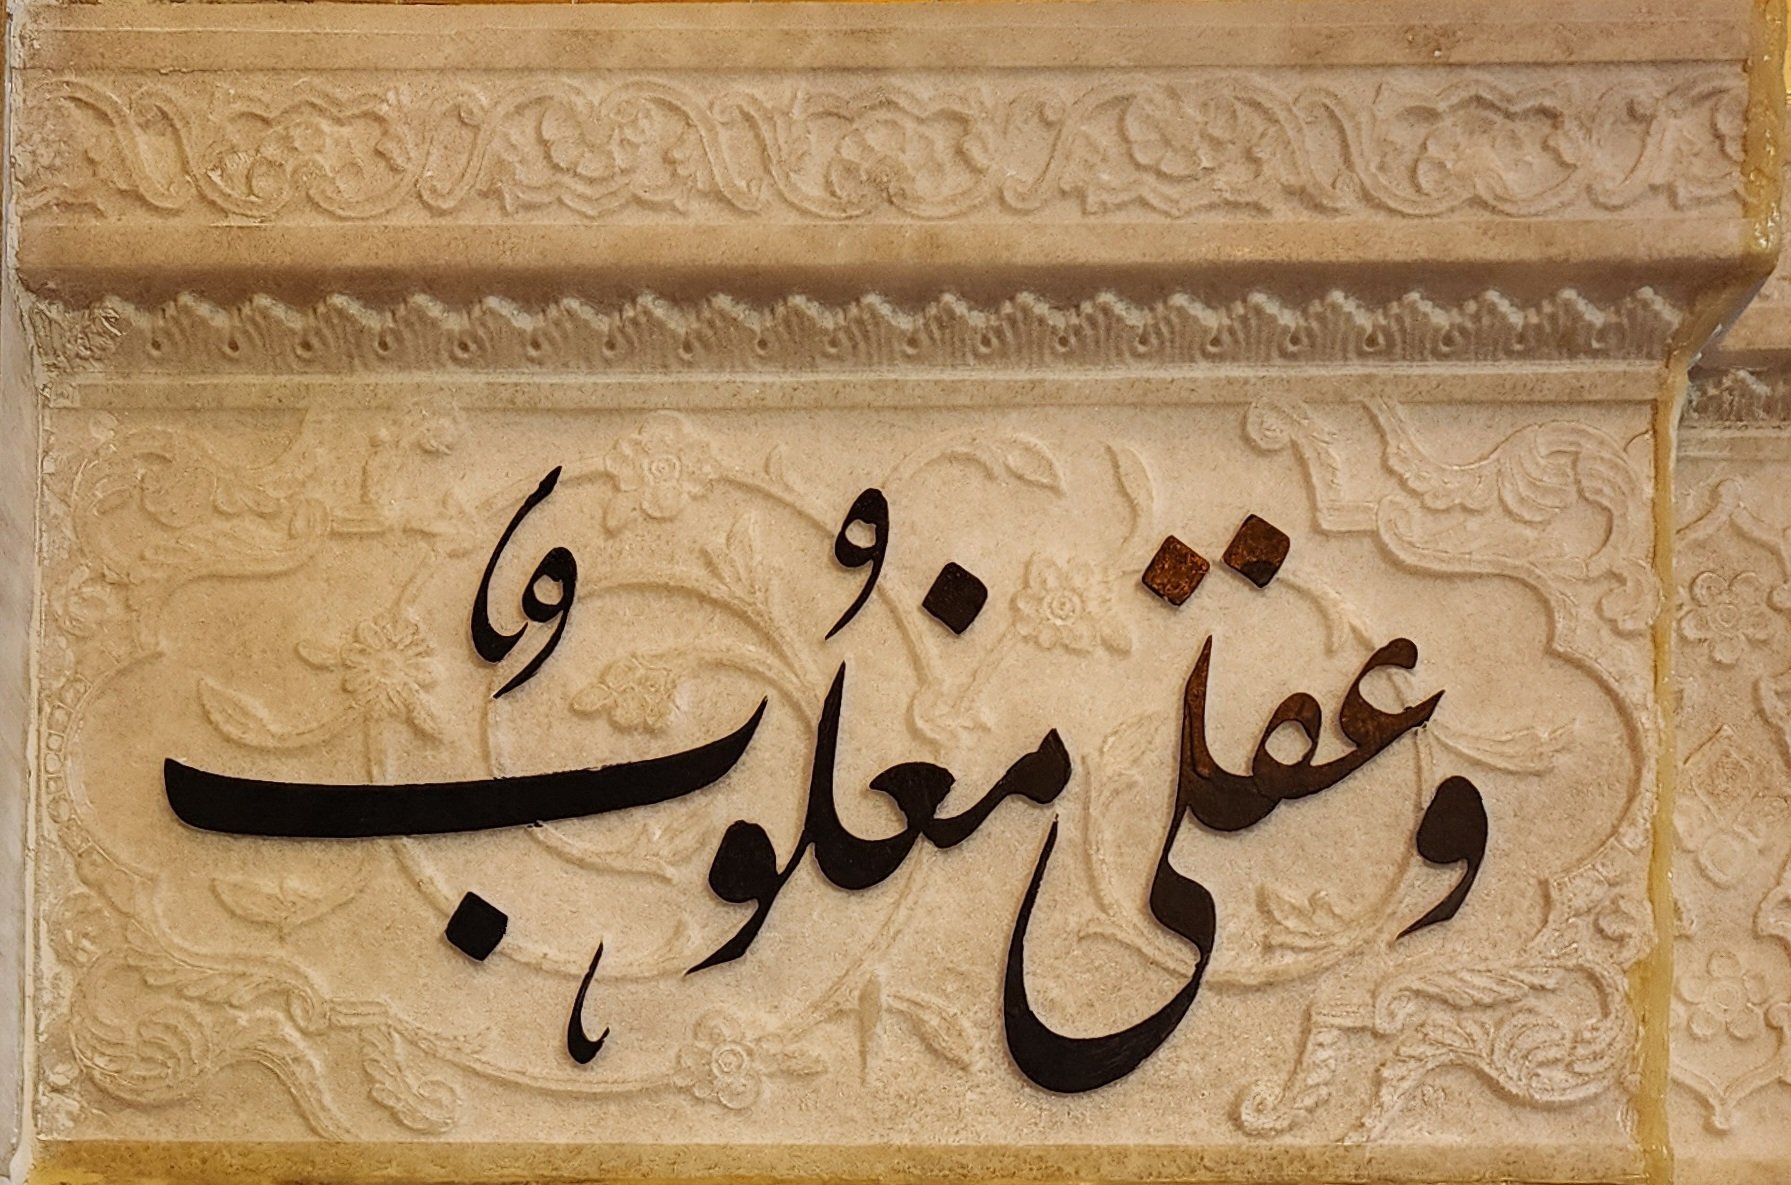 وعقلی مغلُوبٌ